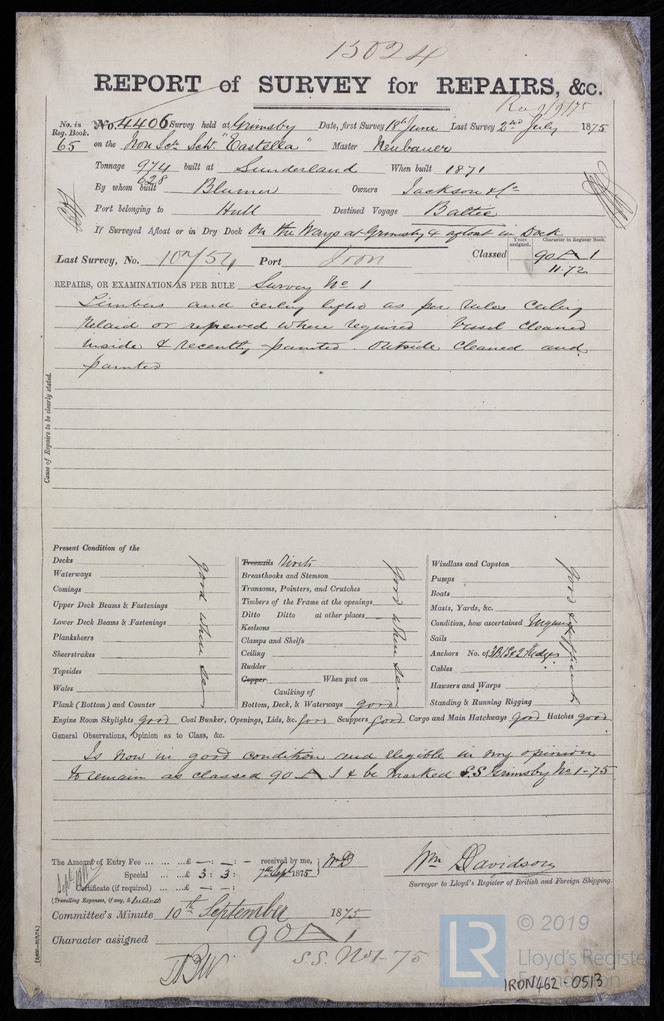 15024
REPORT of SURVEY for REPAIRS, &c.
Rec 9/9/75
No. in Reg. Book. No. 4406 Survey held at Grimsby Date, first Survey 18th June Last Survey 2nd July 1875
65 on the Iron Scr Schr "Eastella" Master Neubauer
Tonnage 974 built at Sunderland When built 1871
628
By whom built Blumer Owners Jackson & Co
Port belonging to Hull Destined Voyage Baltic
If Surveyed Afloat or in Dry Dock On the Ways at Grimsby & afloat in Dock
Years assigned. Character in Register Book.
Last Survey, No. 10754 Port Iron Classed 90 A 1
11.72
REPAIRS, OR EXAMINATION AS PER RULE Survey No 1
Limbers and ceiling lifted as per rules Ceiling
relaid or renewed where required Vessel cleaned
inside & recently painted. Outside cleaned and
painted
Cause of Repairs to be clearly stated.
Present Condition of the
Decks
Waterways
Comings
Upper Deck Beams & Fastenings
Lower Deck Beams & Fastenings
Planksheers
Sheerstrakes
Topsides
Wales
Plank (Bottom) and Counter
good where seen
Treenails Rivets
Breasthooks and Stemson
Transoms, Pointers, and Crutches
Timbers of the Frame at the openings
Ditto Ditto at other places
Keelsons
Clamps and Shelfs
Ceiling
Rudder
Copper When put on
Caulking of
Bottom, Deck, & Waterways good
good where seen
Windlass and Capstan
Pumps
Boats
Masts, Yards, &c.
Condition, how ascertained Enquiry
Sails
Anchors No. of 3B 1S & 2 Kedges
Cables
Hawsers and Warps
Standing & Running Rigging
good & efficient
Engine Room Skylights good Coal Bunker, Openings, Lids, &c. good Scuppers good Cargo and Main Hatchways good Hatches good
General Observations, Opinion as to Class, &c.
Is now in good condition and eligible in my opinion
to remain as classed 90 A 1 & be marked S.S Grimsby No 1-75
The Amount of Entry Fee £ — : — : - received by me, WD
Special £ 3 : 3 : 7th Sept 1875
Certificate (if required) £ — : — :
(Travelling Expenses, if any, £
Wm Davidson
Surveyor to Lloyd's Register of British and Foreign Shipping.
Committee's Minute 10th September 1875
Character assigned 90 A 1
S.S. No 1-75
© 2019
LR Lloyd's Register Foundation
IRON462-0513